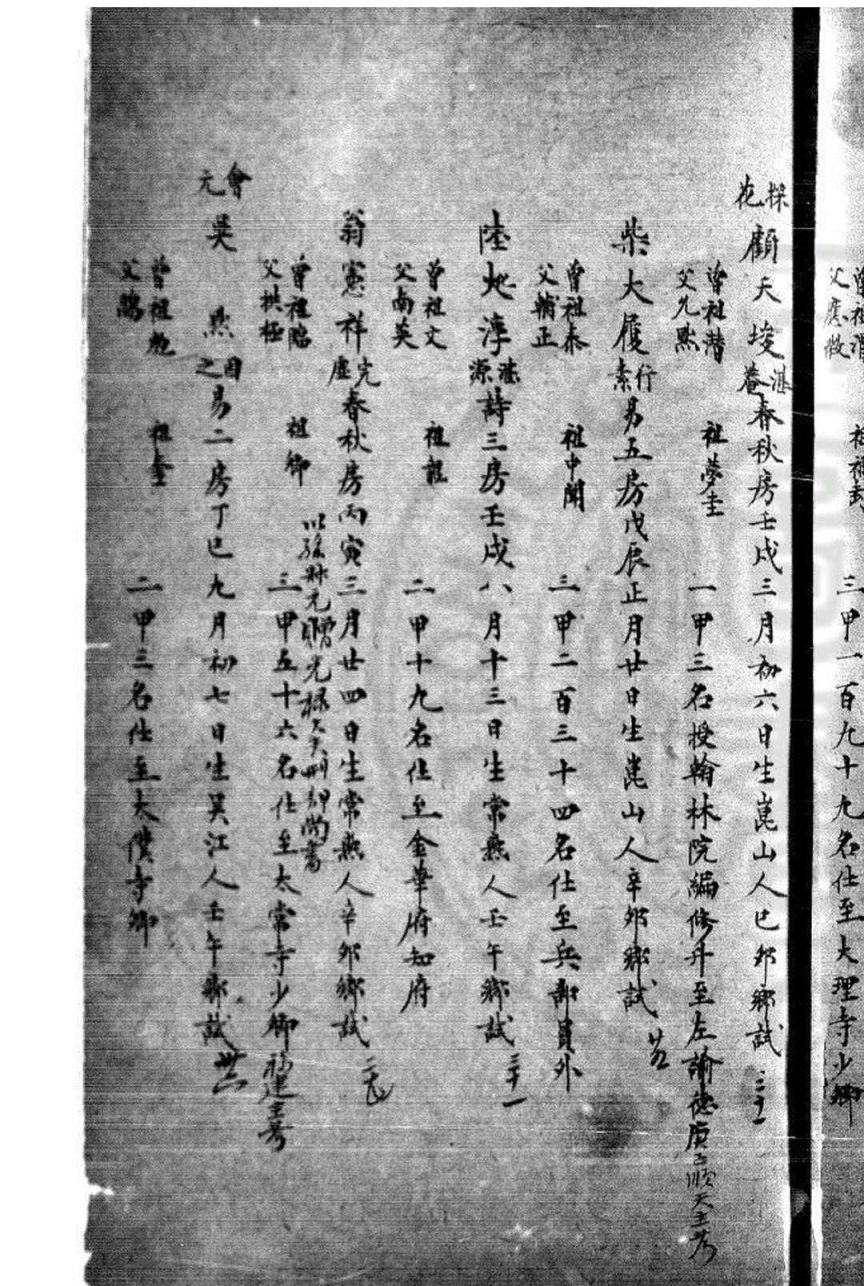 曾祖 祖 三甲一百九十九名仕至大理寺少卿
父
探花 顧天埈 湛菴 春秋房壬戌三月初六日生崑山人己卯鄉試 三十一
曾祖潜 祖夢圭 一甲三名授翰林院編修升至左諭德庚子順天主考
父允默
柴大履 行素 易五房戊辰正月廿日生崑山人辛卯鄉試 廿五
曾祖泰 祖中聞 三甲二百三十四名仕至兵部員外
父輔正
陸化淳 湛源 詩三房壬戌八月十三日生常熟人壬午鄉試 三十一
曾祖文 祖 二甲十九名仕至金華府知府
父南英
翁憲祥 完虛 春秋房丙寅三月廿四日生常熟人辛卯鄉試
以孫叔元贈光祿大夫刑部尚書
曾祖臨 祖卿 三甲五十六名仕至太常寺少卿福建主考
父拱極
會元 吳默 因之 易二房丁巳九月初七日生吳江人壬午鄉試 卅六
曾祖 祖 二甲三名仕至太僕寺卿
父